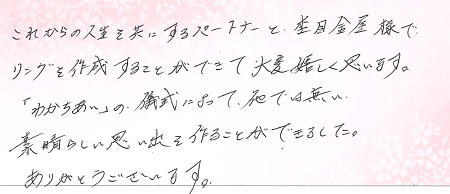 これからの人生を共にするパートナーと、杢目金屋様で
リングを作成することができて大変嬉しく思います。
「わかちあい」の儀式によって、他では無い
素晴らしい思い出を作ることができました。
ありがとうございます。